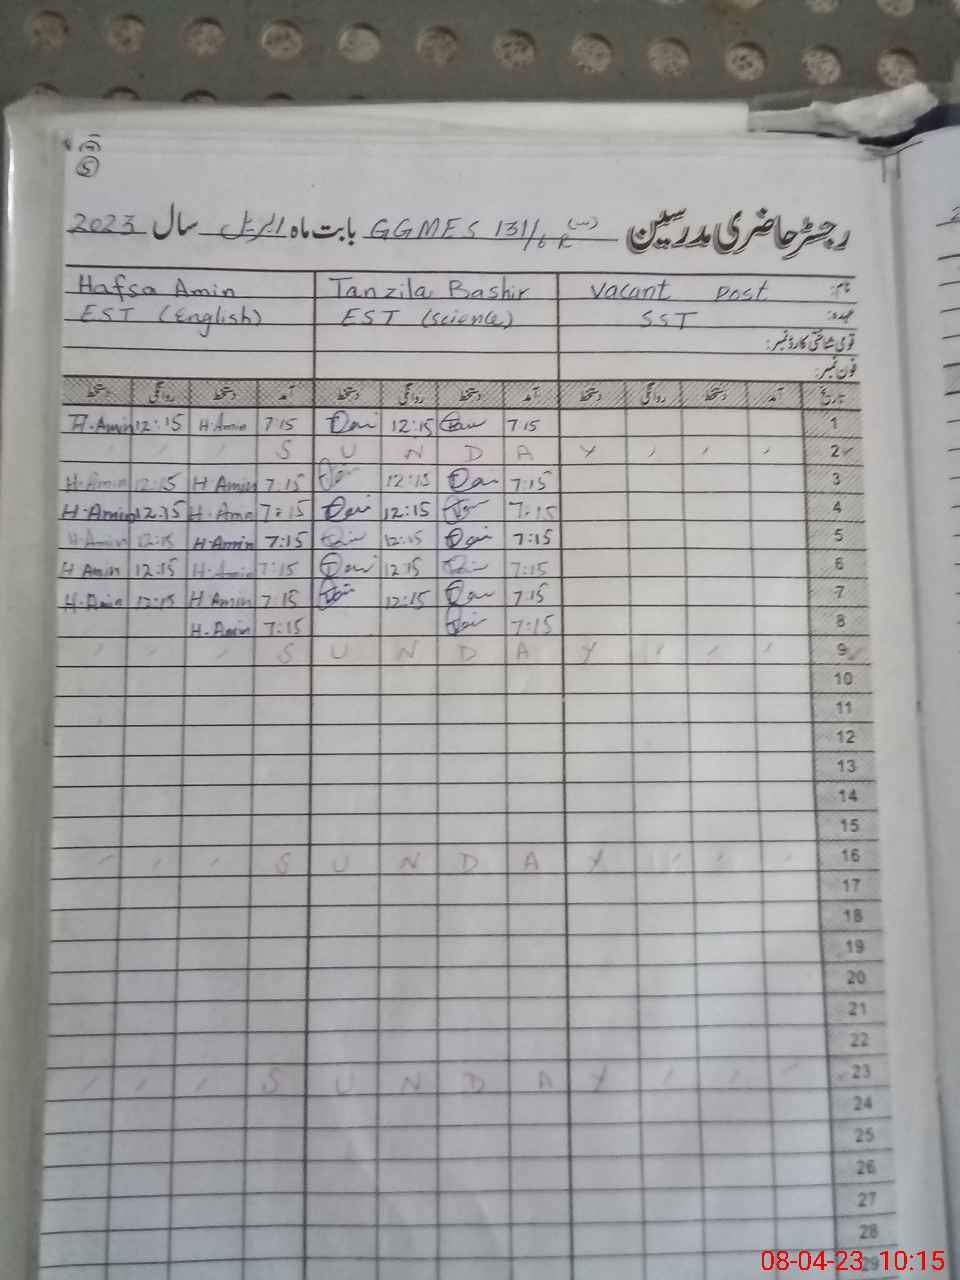 5
رجسٹر حاضری مدرسین GGMES 131/6R بابت ماہ اپریل سال 2023
نام: Vacant Post Tanzila Bashir Hafsa Amin
عہدہ: SST EST (Science) EST (English)
قومی شناختی کارڈ نمبر:
فون نمبر:
تاریخ آمد دستخط روانگی دستخط آمد دستخط روانگی دستخط آمد دستخط روانگی دستخط
H.Amin 12:15 H.Amin 7:15 12:15 7:15 1
S U N D A Y 2
H.Amin 12:15 H.Amin 7:15 12:15 7:15 3
H.Amin 12:15 H.Amin 7:15 12:15 7:15 4
H.Amin 12:15 H.Amin 7:15 12:15 7:15 5
H.Amin 12:15 H.Amin 7:15 12:15 7:15 6
H.Amin 12:15 H.Amin 7:15 12:15 7:15 7
H.Amin 7:15 7:15 8
S U N D A Y 9
10
11
12
13
14
15
S U N D A Y 16
17
18
19
20
21
22
S U N D A Y 23
24
25
26
27
28
29
08-04-23 10:15